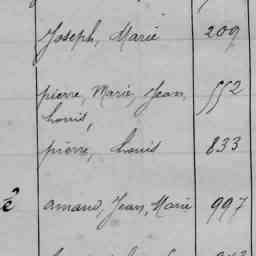 Joseph, Marie 209
pierre, Marie, Jean, 552
Louis,
pierre, Louis 833
é amand, Jean, Marie 997